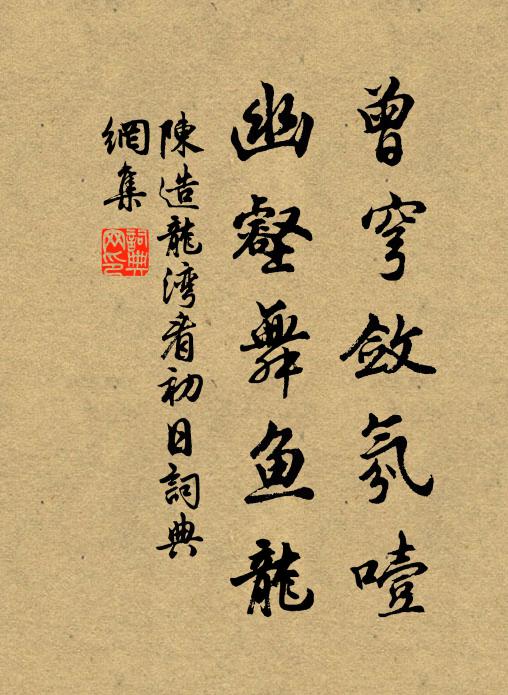 曾穹斂氛噎
幽壑舞魚龍
陳造龍灣看初日詞典
網集
詞典網印